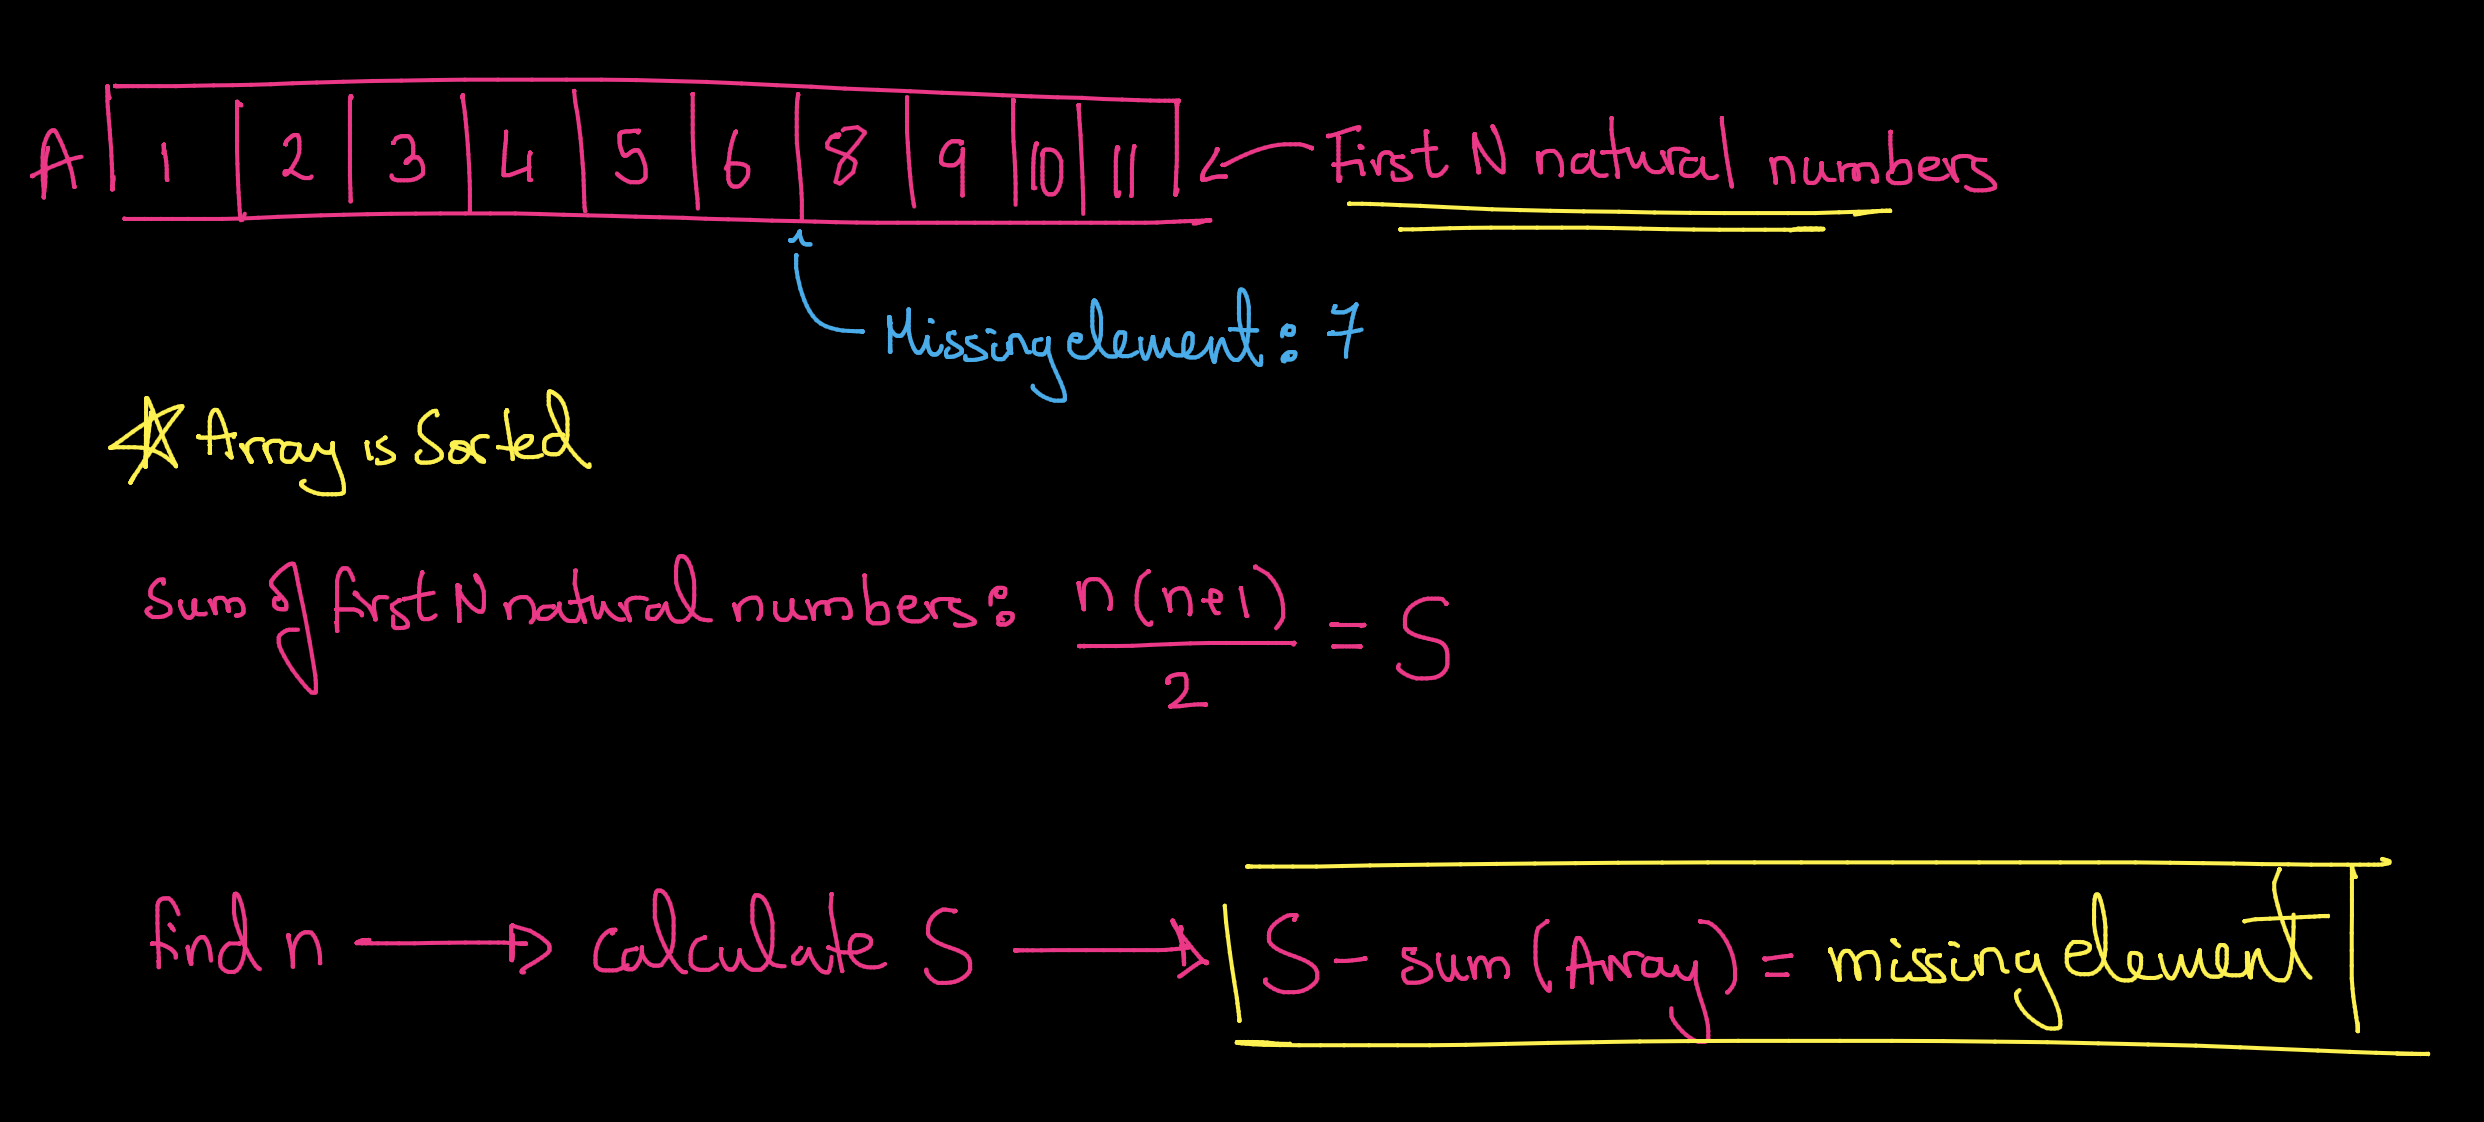 A 1 2 3 4 5 6 8 9 10 11 First N natural numbers
Missing element: 7
Array is Sorted
Sum of first N natural numbers: n(n+1)/2 = S
find n → calculate S → S - sum(Array) = missing element